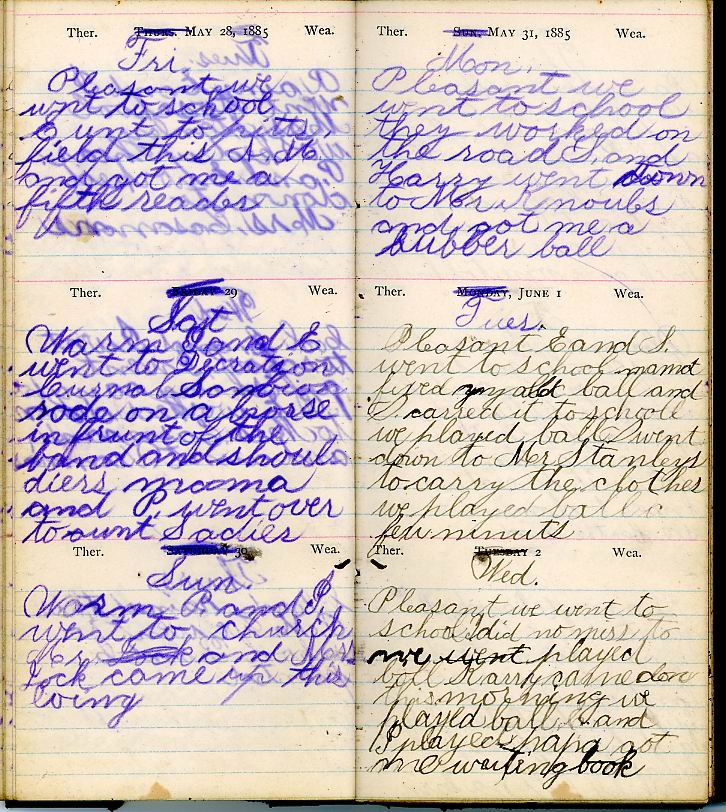 Ther. Thurs. May 28, 1885 Wea.
Fri.
Pleasant we
went to school
E unt to pitts
field this A.M.
and got me a
fifth reader
Ther. Friday 29 Wea.
Sat
Warm I and E
went to Decration
Curnal
rode on a horse
in frunt of the
band and shoul
diers mama
and P. went over
to aunt Sadies
Ther. Saturday 30 Wea.
Sun.
Warm P and I
went to church
Mr Lock and Mrs
Lock came up this
eving
Ther. Sun. May 31, 1885 Wea.
Mon.
Pleasant we
went to school
they worked on
the road S. and
Harry went down
to Mr
and got me a
bubber ball
Ther. Monday, June 1 Wea.
Tues.
Pleasant E and S.
went to school mama
fixed my ald ball and
I carred it to schoole
we played ball I went
down to Mr Stanleys
to carry the clothes
we played ball a
few minuts
Ther. Tuesday 2 Wea.
Wed.
Pleasant we went to
school I did no miss to
we went played
ball Harry came down
this morning we
played ball E and
P played papa got
me waiting book